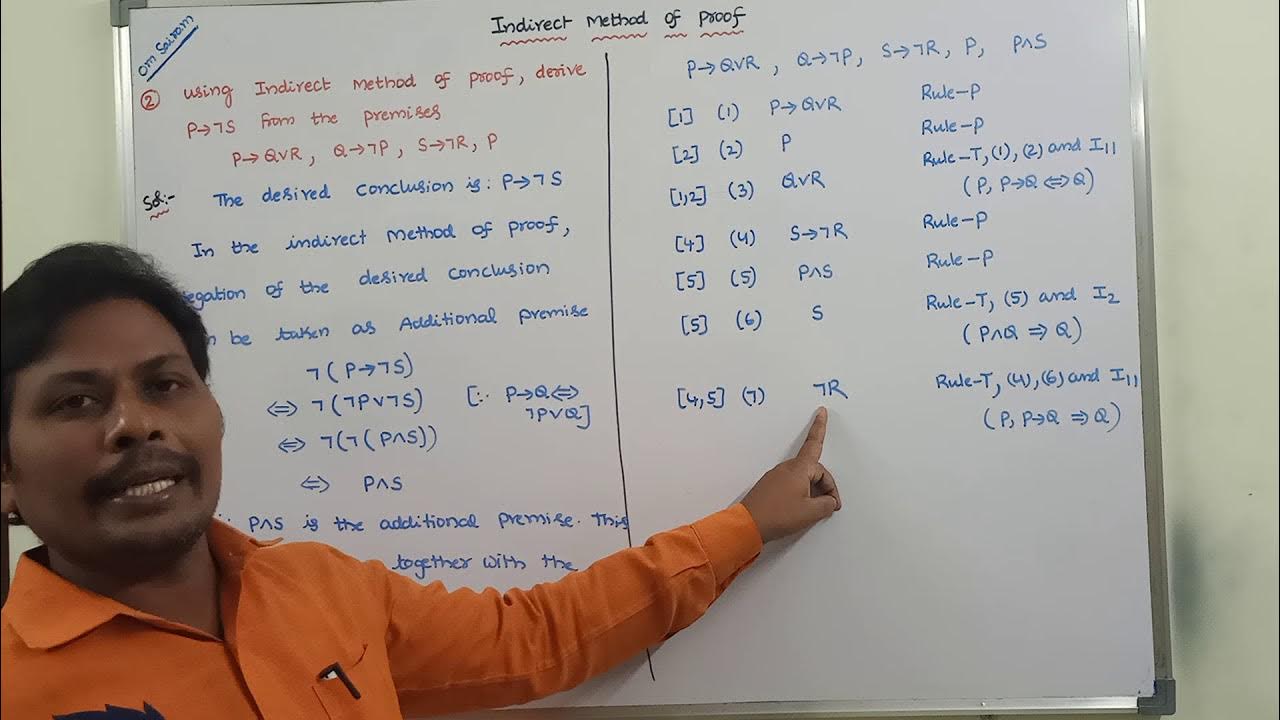 Om Sairam
Indirect Method of Proof
② using Indirect Method of Proof, derive
P→¬S from the premises
P→Q∨R, Q→¬P, S→¬R, P
Sol:- The desired conclusion is: P→¬S
In the indirect Method of proof,
of the desired conclusion
be taken as Additional premise
¬(P→¬S)
⇔ ¬(¬P∨¬S) [∵ P→Q⇔
¬P∨Q]
⇔ ¬(¬(P∧S))
⇔ P∧S
P∧S is the additional premise. This
together with the
P→Q∨R, Q→¬P, S→¬R, P, P∧S
[1] (1) P→Q∨R Rule-P
[2] (2) P Rule-P
[1,2] (3) Q∨R Rule-T, (1), (2) and I11
(P, P→Q ⇔ Q)
[4] (4) S→¬R Rule-P
[5] (5) P∧S Rule-P
[5] (6) S Rule-T, (5) and I2
(P∧Q ⇒ Q)
[4,5] (7) ¬R Rule-T, (4), (6) and I11
(P, P→Q ⇒ Q)